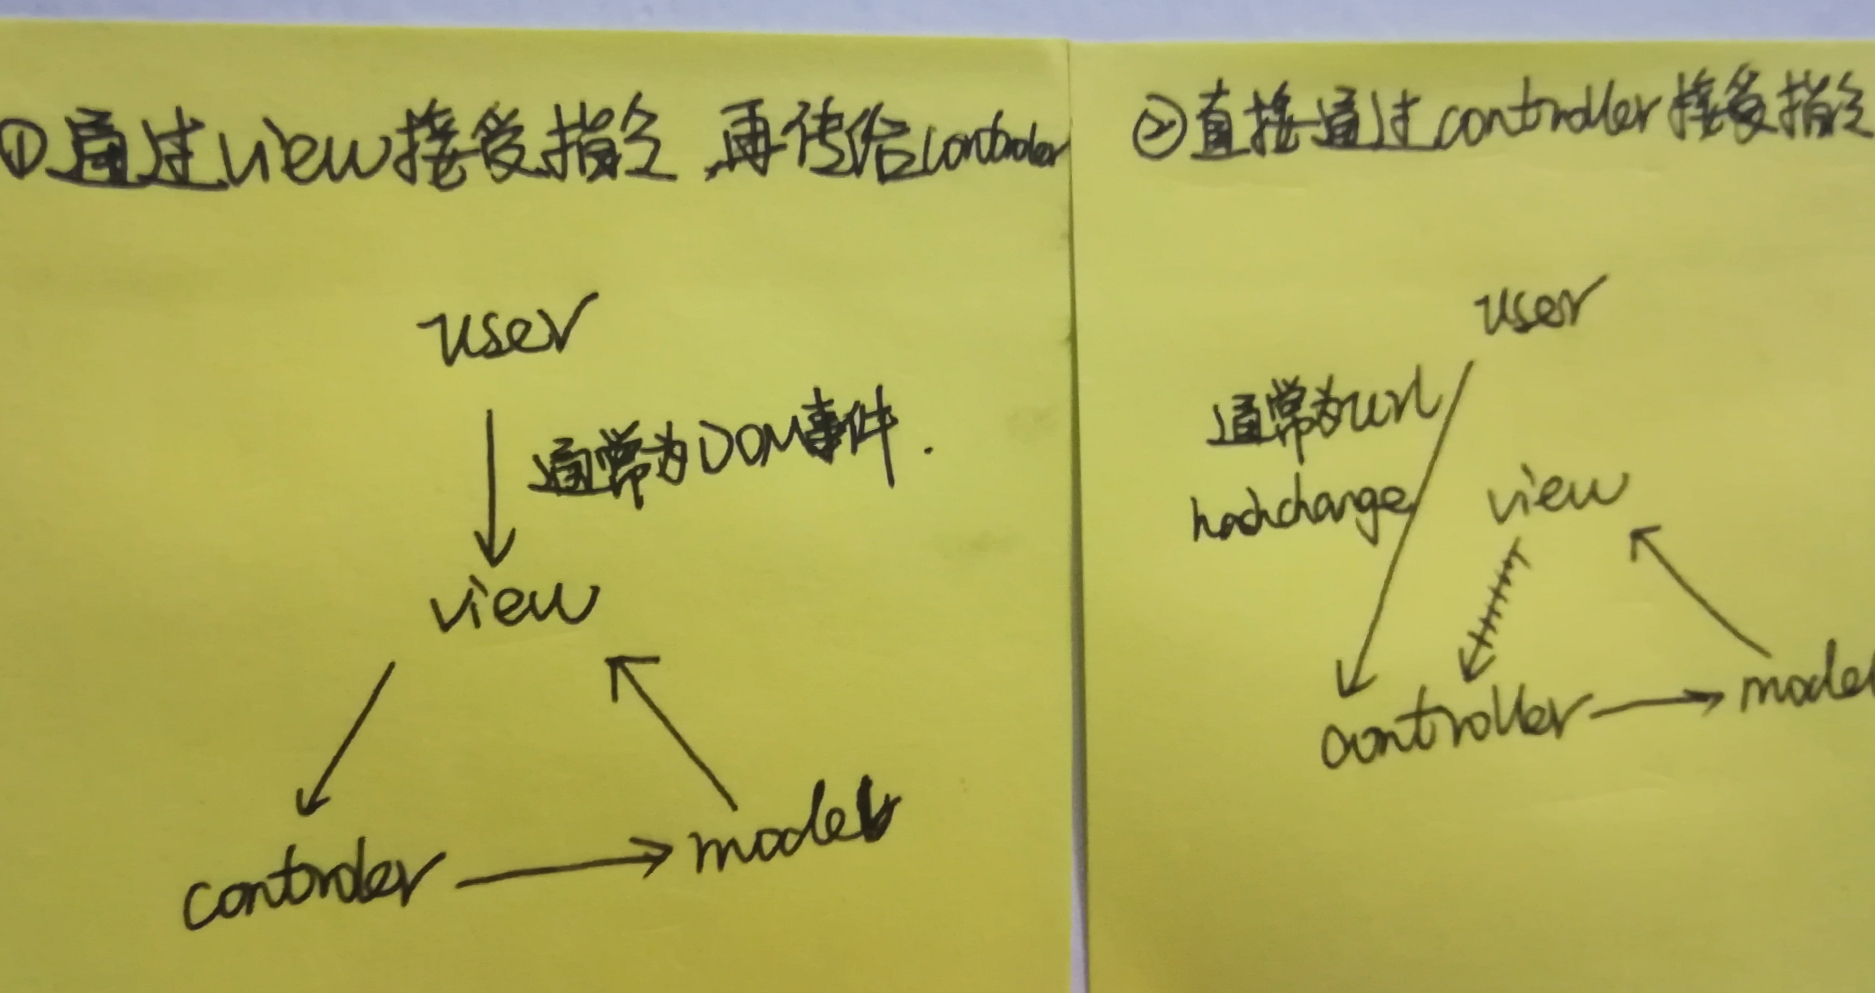 ①通过view接受指令 再传给controler
user
通常为DOM事件.
view
controler
model
②直接通过controller接受指令
user
通常为url
hashchange
view
controller
model